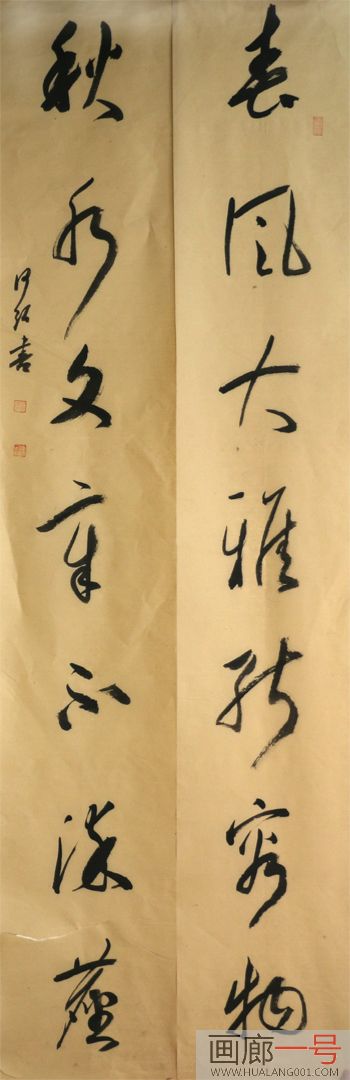 春风大雅能容物
秋水文章不染尘
书
画廊一号
WWW.HUALANG001.COM